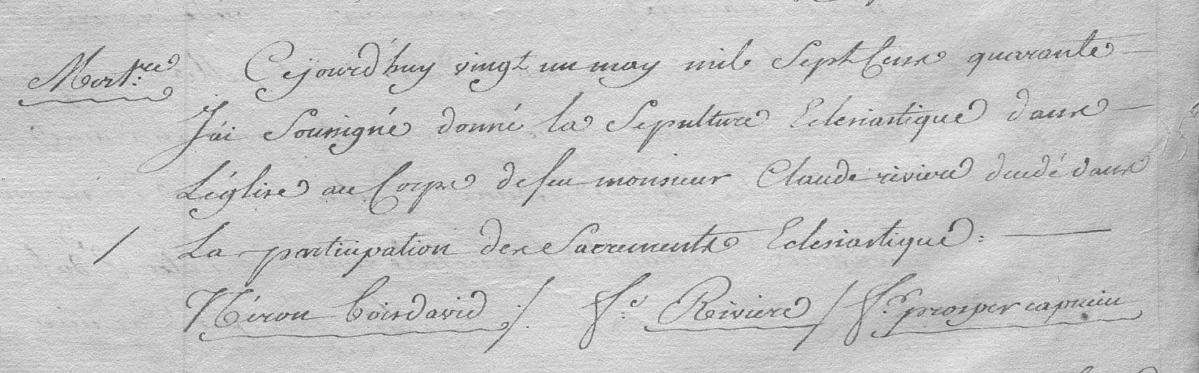 Mort.re
Cejourd'huy vingt un may mil Sept Cens quarante
J'ai Sousigné donné la Sepulture Eclesiastique dans
L'église au Corps de feu monsieur Claude riviere décédé dans
La participation des Sacrements Eclesiastique :
Néron boisdavid /. f.s Riviere / f.r prosper capucin